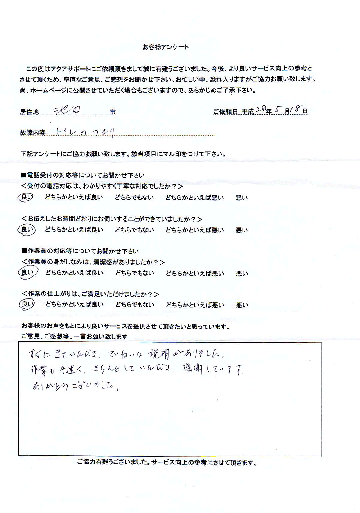 お客様アンケート
この度はアクアサポートにご依頼頂きまして誠に有難うございました。今後、より良いサービス向上の参考と
させて頂くため、率直なご意見、ご感想をお聞かせ下さい。お忙しい中、恐れ入りますがご協力お願い致します。
尚、ホームページに公開させていただく場合もございますので、あらかじめご了承下さい。
居住地 市 ご依頼日 平成 28年 5月18日
故障内容 トイレのつまり
下記アンケートにご協力お願い致します。該当項目にマル印をつけて下さい。
■電話受付の対応等についてお聞かせ下さい
<受付の電話対応は、わかりやすく丁寧な対応でしたか?>
良い どちらかといえば良い どちらでもない どちらかといえば悪い 悪い
<お伝えしたお時間どおりにお伺いすることができていましたか?>
良い どちらかといえば良い どちらでもない どちらかといえば悪い 悪い
■作業員の対応等についてお聞かせ下さい
<作業員の身だしなみは、清潔感がありましたか?>
良い どちらかといえば良い どちらでもない どちらかといえば悪い 悪い
<作業の仕上がりは、ご満足いただけましたか?>
良い どちらかといえば良い どちらでもない どちらかといえば悪い 悪い
お客様のお声をもとにより良いサービスを提供させて頂きたいと思っています。
ご意見、ご感想等、一言お願い致します
すぐに来ていただき、ていねいな説明がありました。
作業も手速く、きちんとしていただき 感謝しています
ありがとうございました。
ご協力有難うございました。サービス向上の参考にさせて頂きます。